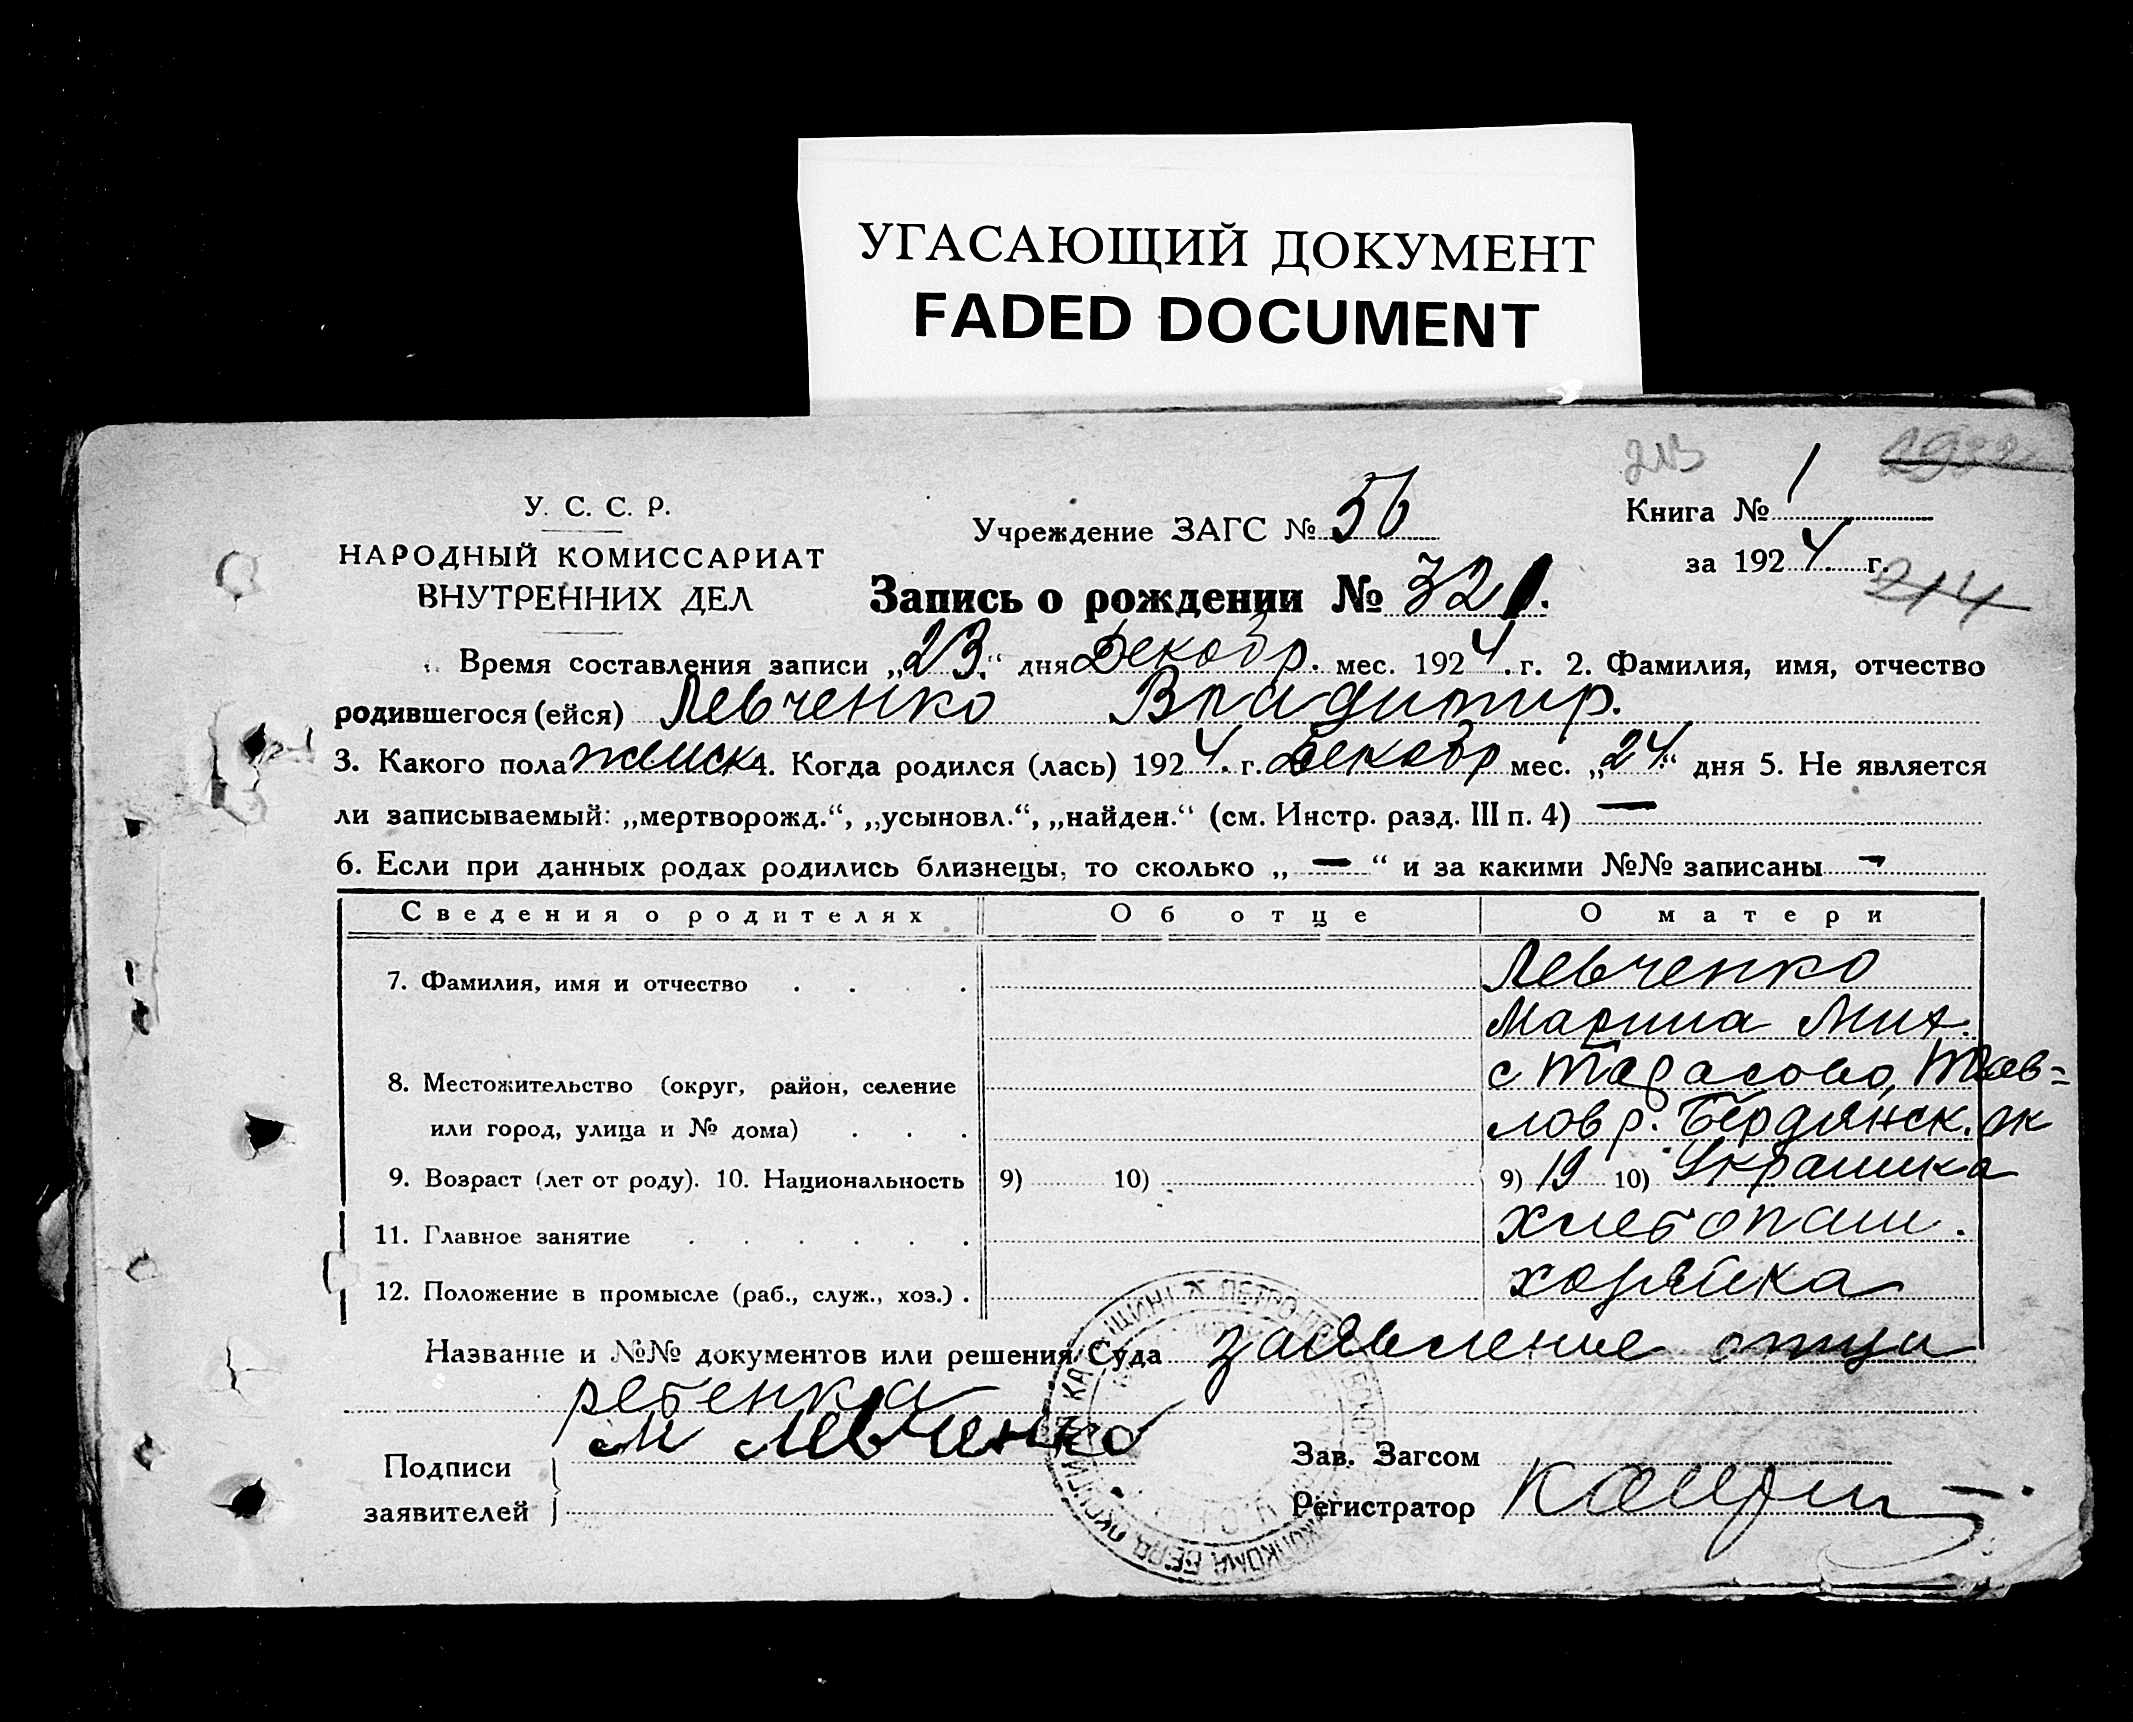 УГАСАЮЩИЙ ДОКУМЕНТ
FADED DOCUMENT
213
1
У. С. С. Р.
Учреждение ЗАГС № 56
Книга № 1
НАРОДНЫЙ КОМИССАРИАТ
за 1924 г.
ВНУТРЕННИХ ДЕЛ
Запись о рождении № 321.
214
Время составления записи „23.“ дня Декабр. мес. 1924. г. 2. Фамилия, имя, отчество
родившегося (ейся) Левченко Владимир.
3. Какого пола женск 4. Когда родился (лась) 1924. г. Декабр мес. „24.“ дня 5. Не является
ли записываемый: „мертворожд.“, „усыновл.“, „найден.“ (см. Инстр. разд. III п. 4) —
6. Если при данных родах родились близнецы, то сколько „ — “ и за какими №№ записаны -
Сведения о родителях Об отце О матери
7. Фамилия, имя и отчество . . . . Левченко
Марина Мих.
8. Местожительство (округ, район, селение с Тарасово,
или город, улица и № дома) . . . лов р. Бердянск.
9. Возраст (лет от роду). 10. Национальность 9) 10) 9) 19 10) Украинка
11. Главное занятие . . . . . . хлебопаш.
12. Положение в промысле (раб., служ., хоз.) . хозяйка
Название и №№ документов или решения Суда заявление отца
ребенка
М Левченко
Подписи
заявителей
Зав. Загсом
Регистратор